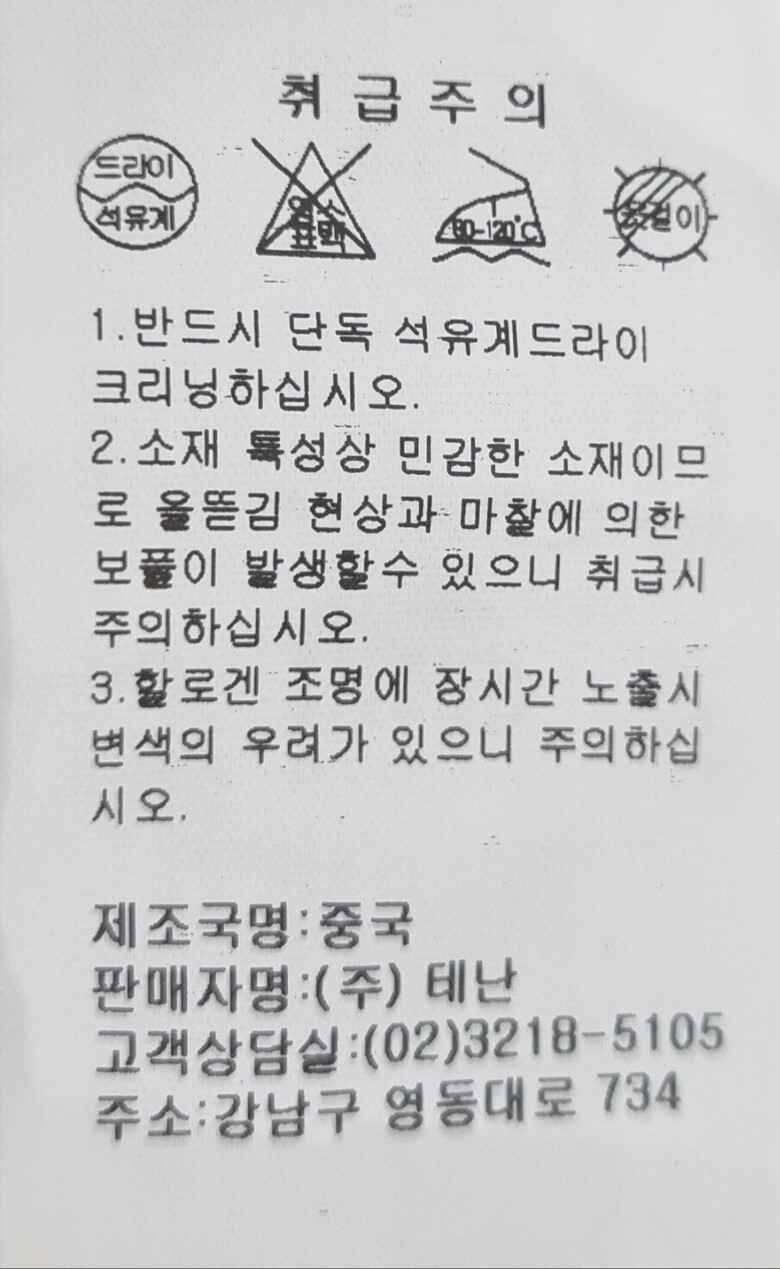 취급주의
드라이
석유계
염소
표백
80-120°C
옷걸이
1.반드시 단독 석유계드라이
크리닝하십시오.
2.소재 특성상 민감한 소재이므
로 올뜯김 현상과 마찰에 의한
보풀이 발생할수 있으니 취급시
주의하십시오.
3.할로겐 조명에 장시간 노출시
변색의 우려가 있으니 주의하십
시오.
제조국명:중국
판매자명:(주) 테난
고객상담실:(02)3218-5105
주소:강남구 영동대로 734